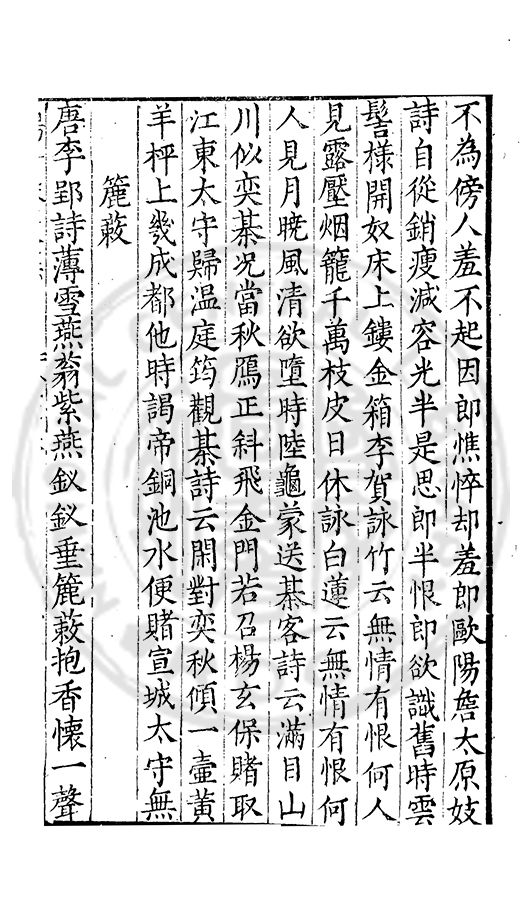 不為傍人羞不起因郎憔悴却羞郎歐陽詹太原妓
詩自從銷瘦減容光半是思郎半恨郎欲識舊時雲
髻樣開奴床上鏤金箱李賀詠竹云無情有恨何人
見露壓烟籠千萬枝皮日休詠白蓮云無情有恨何
人見月曉風清欲墮時陸龜蒙送棊客詩云滿目山
川似奕棊况當秋鴈正斜飛金門若召楊玄保賭取
江東太守歸温庭筠觀棊詩云閑對奕秋傾一壷黄
羊枰上幾成都他時謁帝銅池水便賭宣城太守無
簏蔌
唐李郢詩薄雪燕蓊紫燕釵釵垂簏蔌抱香懷一聲